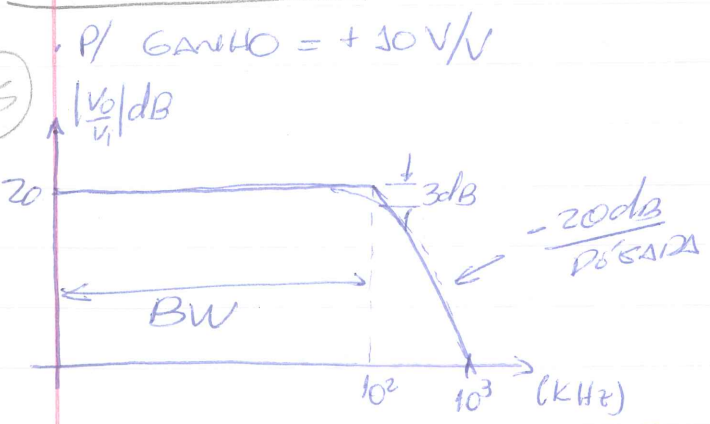 . P/ GANHO = + 10 V/V
|Vo/V1| dB
20
3dB
-20dB/DÉCADA
BW
10²
10³
(KHz)